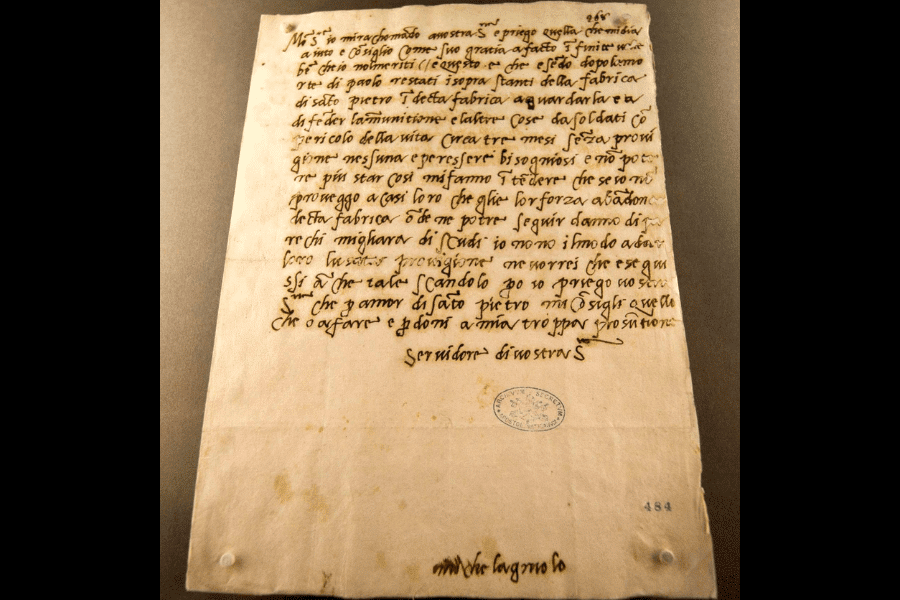 468
Mo S.re io mi rachomādo a vostra S.ria e priego quella che mi dia
aiuto e cōsiglio come suo gratia a facto ī finite
bē che io nol meriti // e questo e che esēdo dopo la mo
rte di paolo restati i sopra stanti della fabrica
di sāto pietro ī decta fabrica a guardarla e a
difēder la munitione e l altre cose da soldati cō
pericolo della vita circa tre mesi sēza provi
gione nessuna e per essere bisogniosi e nō pote
re piu star cosi mi fanno ī tēdere che se io nō
proveggo a casi loro che gli e lor forza abādon
decta fabrica ōde ne potre seguir danno di pa
rechi migliara di scudi io no no il modo a dar
loro provigione ne vorrei che e segui
ssi āche tale scandolo po io priego vostra
S.ria che p amor di sāto pietro mi cōsigli quello
che o a fare e pdoni a mia troppa prosūtione
Servidore di vostra S.ria
ARCHIVVM SECRETVM
484
michelagniolo